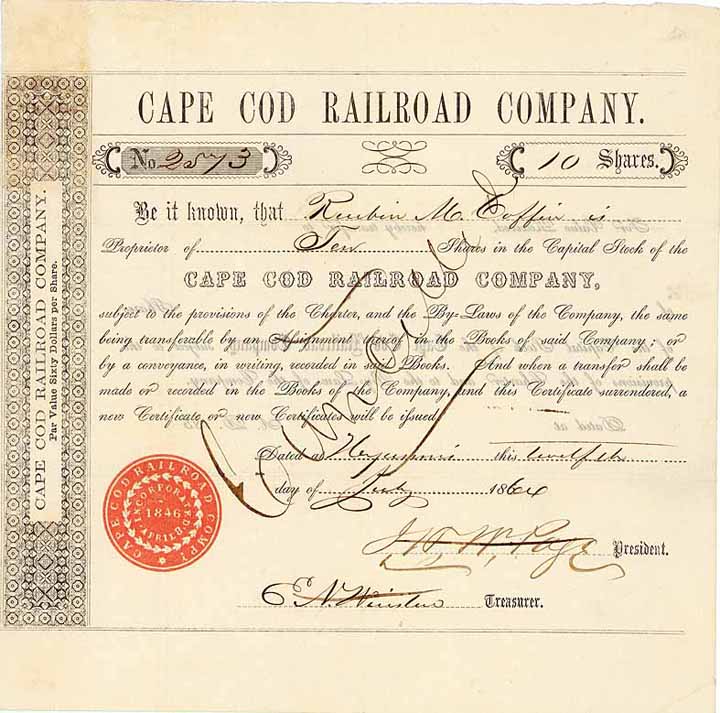 CAPE COD RAILROAD COMPANY.
No. 2573
10 Shares.
Be it known, that Reubin M. Coffin is
Proprietor of Ten Shares in the Capital Stock of the
CAPE COD RAILROAD COMPANY,
subject to the provisions of the Charter, and the By-Laws of the Company, the same
being transferable by an Assignment thereof in the Books of said Company; or
by a conveyance, in writing, recorded in said Books. And when a transfer shall be
made or recorded in the Books of the Company, and this Certificate surrendered, a
new Certificate or new Certificates will be issued.
Dated at this twelfth
day of July 1864
President.
E. N. Treasurer.
Cancelled
CAPE COD RAILROAD COMPANY.
Par Value Sixty Dollars per Share.
CAPE COD RAILROAD COMPY.
INCORPORATED
1846
APRIL